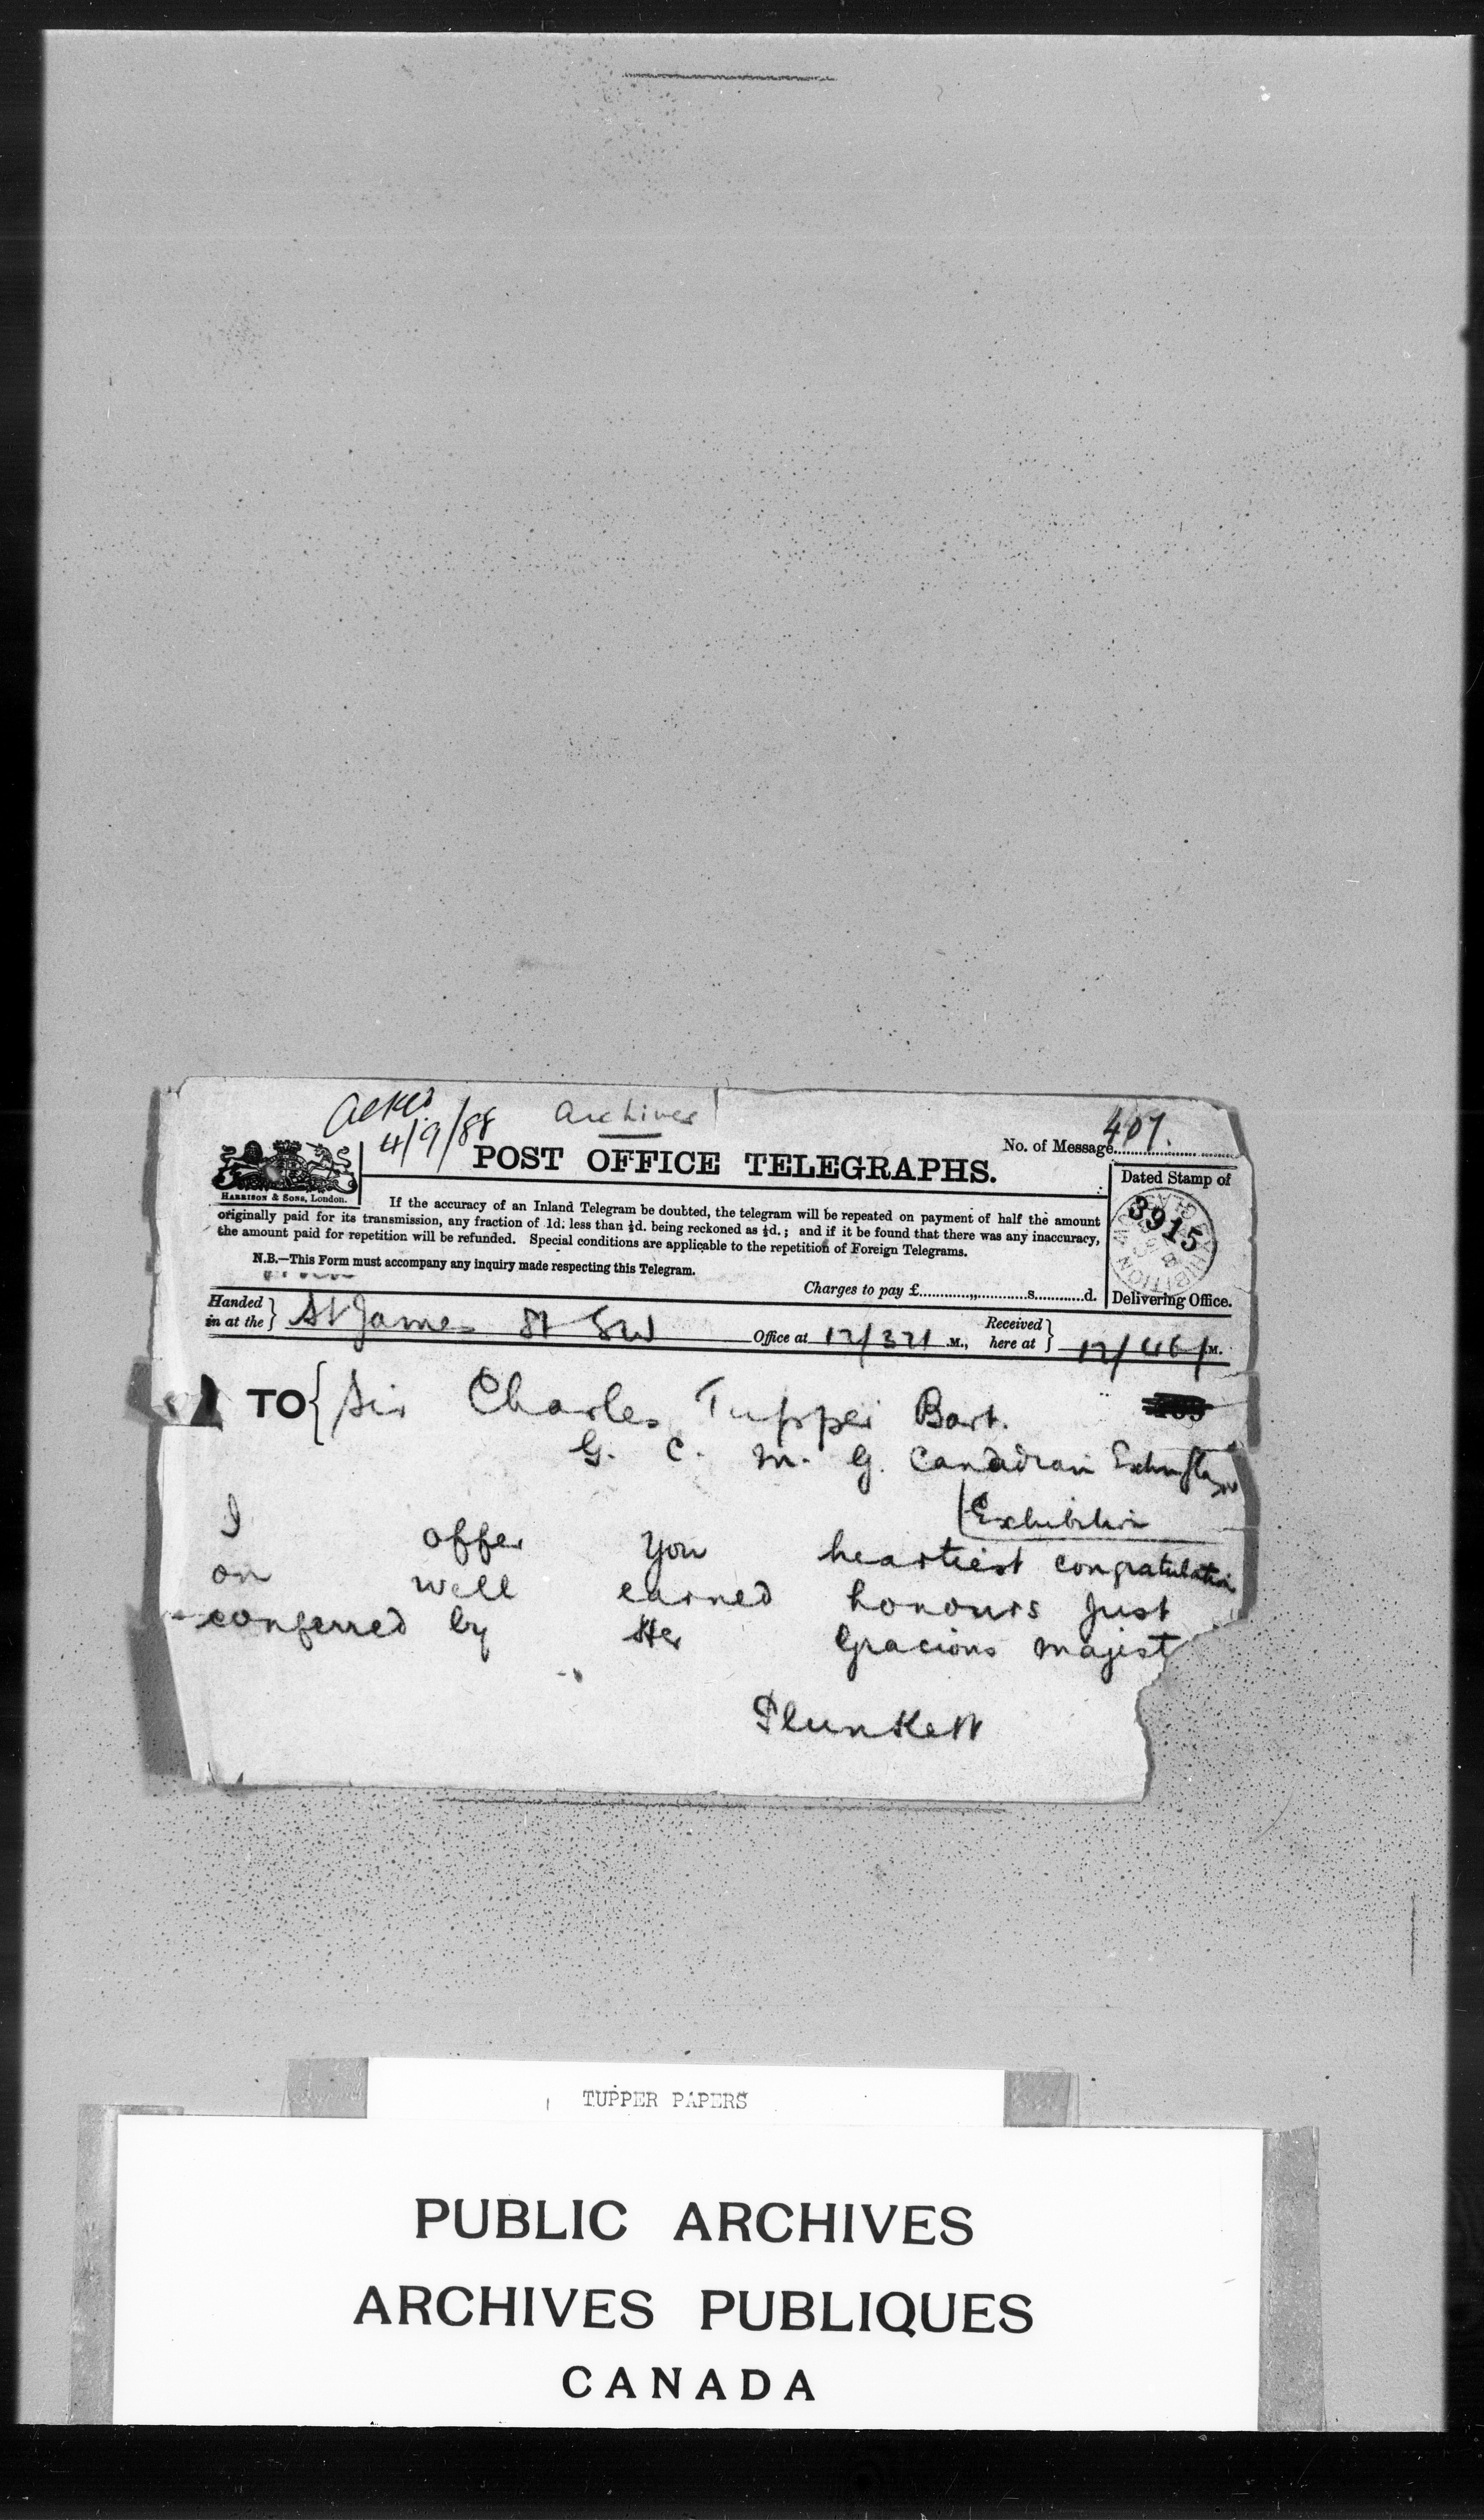 Ackd
4/9/88
Archives
No. of Message 407.
POST OFFICE TELEGRAPHS.
HARRISON & SONS, London.
Dated Stamp of
3915
If the accuracy of an Inland Telegram be doubted, the telegram will be repeated on payment of half the amount
originally paid for its transmission, any fraction of 1d. less than ½d. being reckoned as ½d.; and if it be found that there was any inaccuracy,
the amount paid for repetition will be refunded. Special conditions are applicable to the repetition of Foreign Telegrams.
N.B.—This Form must accompany any inquiry made respecting this Telegram.
Charges to pay £ s. d.
Delivering Office.
Handed in at the } St James St SW Office at M., Received here at } M.
TO { Sir Charles Tupper Bart.
G. C. M. G. Canadian
Exhibition
I offer you heartiest congratulation
on well earned honours just
conferred by Her Gracious majest
Plunkett
TUPPER PAPERS
PUBLIC ARCHIVES
ARCHIVES PUBLIQUES
CANADA